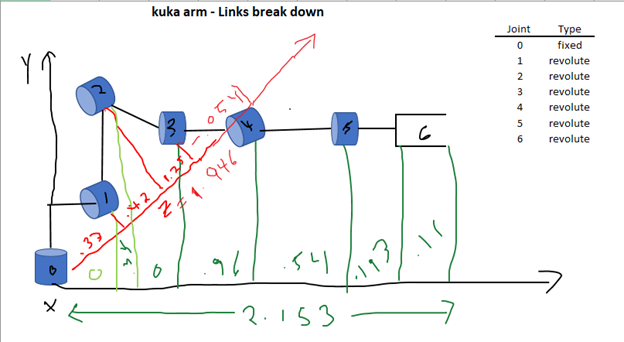 kuka arm - Links break down
Joint Type
0 fixed
1 revolute
2 revolute
3 revolute
4 revolute
5 revolute
6 revolute
Y
2
3
4
5
6
1
0
.33
.42
1.25
-.054
Z = 1.946
0
.35
0
.96
.541
.193
.11
X
2.153